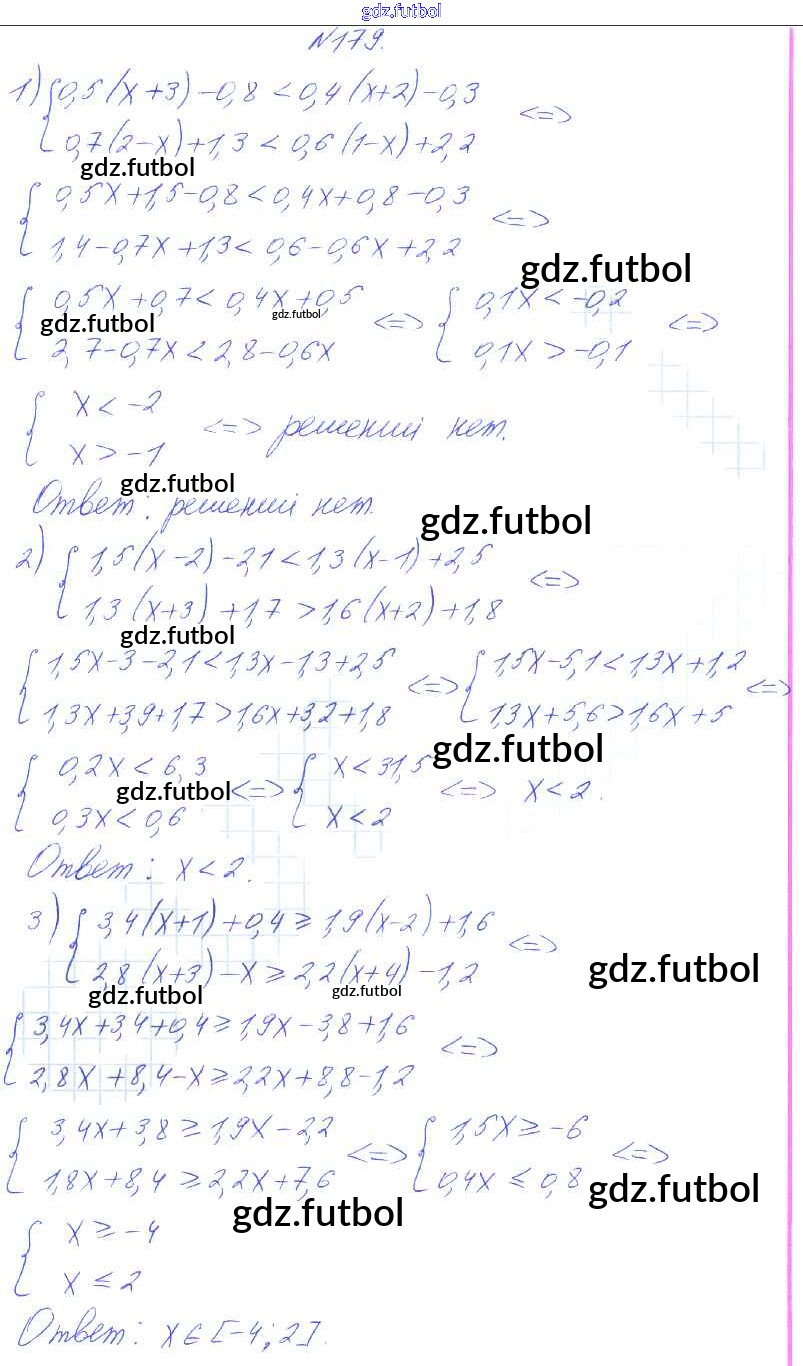 gdz.futbol
№179.
1) {0,5(x+3)-0,8<0,4(x+2)-0,3
0,7(2-x)+1,3<0,6(1-x)+2,2 <=>
gdz.futbol
{0,5x+1,5-0,8<0,4x+0,8-0,3
1,4-0,7x+1,3<0,6-0,6x+2,2 <=>
gdz.futbol
{0,5x+0,7<0,4x+0,5 <=> {0,1x<-0,2 <=>
gdz.futbol gdz.futbol
2,7-0,7x<2,8-0,6x 0,1x>-0,1
{x<-2
x>-1 <=> решений нет.
gdz.futbol
Ответ: решений нет.
gdz.futbol
2) {1,5(x-2)-2,1<1,3(x-1)+2,5
1,3(x+3)+1,7>1,6(x+2)+1,8 <=>
gdz.futbol
{1,5x-3-2,1<1,3x-1,3+2,5 <=> {1,5x-5,1<1,3x+1,2 <=>
1,3x+3,9+1,7>1,6x+3,2+1,8 1,3x+5,6>1,6x+5
gdz.futbol
{0,2x<6,3 <=> {x<31,5 <=> x<2.
gdz.futbol
0,3x<0,6 x<2
Ответ: x<2.
3) {3,4(x+1)+0,4≥1,9(x-2)+1,6
2,8(x+3)-x≥2,2(x+4)-1,2 <=>
gdz.futbol
gdz.futbol gdz.futbol
{3,4x+3,4+0,4≥1,9x-3,8+1,6
2,8x+8,4-x≥2,2x+8,8-1,2 <=>
{3,4x+3,8≥1,9x-2,2 <=> {1,5x≥-6 <=>
1,8x+8,4≥2,2x+7,6 0,4x≤0,8
gdz.futbol
gdz.futbol
{x≥-4
x≤2
Ответ: x∈[-4;2].